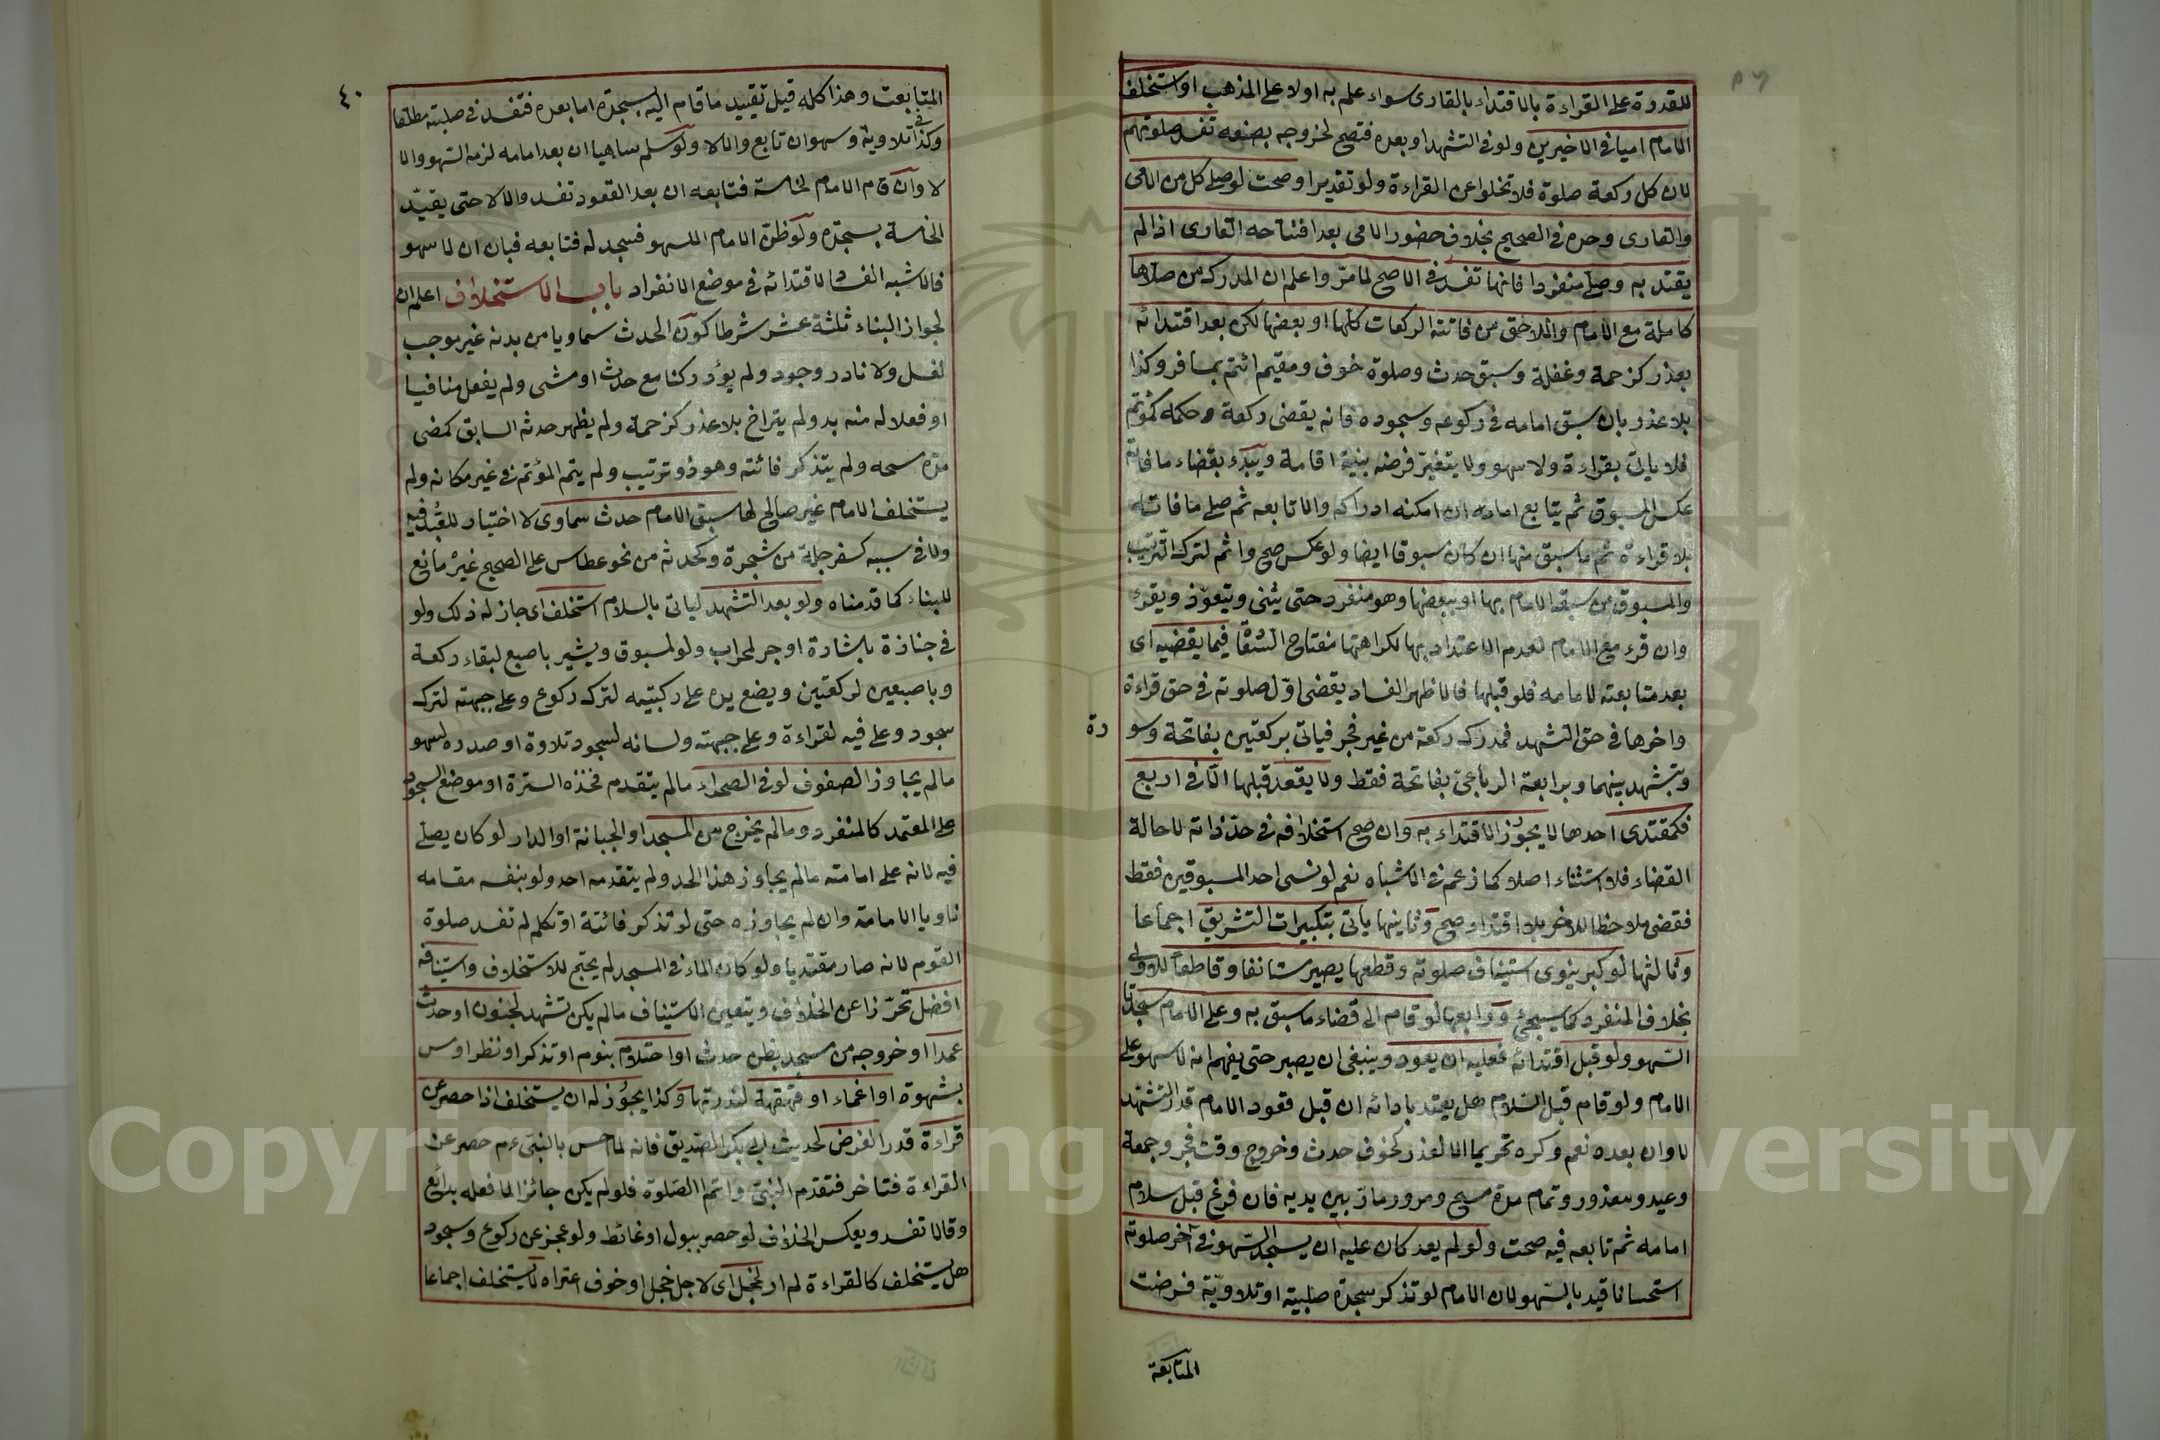 للقدرة على القراءة بالاقتداء بالقارى سواء علم به اولا على المذهب او استخلف
الامام اميا فى الاخيرين ولو فى التشهد او بعده فتصح لخروجه بصنعه تفسد صلوتهم
لان كل ركعة صلوة فلا تخلوا عن القراءة ولو تقديرا وصحت لو صلى كل من الامى
والقارى وحده فى الصحيح بخلاف حضور الامى بعد افتتاحه القارى اذا لم
يقتد به وصلى منفردا فانها تفسد فى الاصح لما مر واعلم ان المدرك من صلاها
كاملة مع الامام واللاحق من فاتته الركعات كلها او بعضها لكن بعد اقتدائه
بعذر كزحمة وغفلة وسبق حدث وصلوة خوف ومقيم ائتم بمسافر وكذا
بلا عذر بان سبق امامه فى ركوعه وسجوده فانه يقضى ركعة وحكمه كمؤتم
فلا ياتى بقراءة ولا سهو ولا يتغير فرضه بنية اقامة ويبدء بقضاء ما فاته
عكس المسبوق ثم يتابع امامه ان امكنه ادراكه والا تابعه ثم صلى ما فاته
بلا قراءة ثم ما سبق منها ان كان مسبوقا ايضا ولو عكس صح واثم لترك الترتيب
والمسبوق من سبقه الامام بها او ببعضها وهو منفرد حتى يثنى ويتعوذ ويقرء
وان قرء مع الامام لعدم الاعتداد بها لكراهتها مفتاح السعادة فيما يقضيه اى
بعد متابعته لامامه فلو قبلها فالاظهر الفساد يقضى اول صلوته فى حق قراءة
واخرها فى حق التشهد فمدرك ركعة من غير فجر فياتى بركعتين بفاتحة وسو
رة
وتشهد بينهما وبرابعة الرباعى بفاتحة فقط ولا يقعد قبلها الا فى اربع
فكمقتدى احدها لا يجوز الاقتداء به وان صح استخلافه فى حد ذاته لا حالة
القضاء فلا استثناء اصلا كما زعم فى الاشباه نعم لو نسى احد المسبوقين فقط
فقضى ملاحظا للاخر بلا اقتدا وصح وثانيها ياتى بتكبيرات التشريق اجماعا
وثالثها لو كبر ينوى استيناف صلوته وقطعها يصير مستانفا وقاطعا للاولى
بخلاف المنفرد كما سيجئ ورابعها لو قام الى قضاء ما سبق به وعلى الامام سجدتا
السهو ولو قبل اقتدائه فعليه ان يعود وينبغى ان يصبر حتى يفهم انه لا سهو على
الامام ولو قام قبل السلام هل يعتد بادائه ان قبل قعود الامام قدر التشهد
لا وان بعده نعم وكره تحريما الا لعذر كخوف حدث وخروج وقت فجر وجمعة
وعيد ومعذور وتمام مدة مسح ومرور مار بين يديه فان فرغ قبل سلام
امامه ثم تابعه فيه صحت ولو لم يعد كان عليه ان يسجد السهو فى آخر صلوته
استحسانا قيد بالسهو لان الامام لو تذكر سجدة صلبية او تلاوية فرضت
المتابعة
٤٠
المتابعت وهذا كله قبل تقييد ما قام اليه بسجدة اما بعده فتفسد فى صلبية مطلقا
وكذا فى تلاوية وسهو ان تابع والا لا ولو سلم ساهيا ان بعد امامه لزمه السهو والا
لا وان قام الامام لخامسة فتابعه ان بعد القعود تفسد والا لا حتى يقيد
الخامسة بسجدة ولو ظن الامام السهو فسجد له فتابعه فبان ان لا سهو
فالاشبه الفساد لاقتدائه فى موضع الانفراد باب الاستخلاف اعلم ان
لجواز البناء ثلثة عشر شرطا كون الحدث سماويا من بدنه غير موجب
لغسل ولا نادر وجود ولم يؤد ركنا مع حدث او مشى ولم يفعل منافيا
او فعلا له منه بد ولم يتراخ بلا عذر كزحمة ولم يظهر حدثه السابق كمضى
مدة مسحه ولم يتذكر فائتة وهو ذو ترتيب ولم يتم المؤتم فى غير مكانه ولم
يستخلف الامام غير صالح لها سبق الامام حدث سماوى لا اختيار للعبد فيه
ولا فى سببه كسفرجلة من شجرة وكحدثه من نحو عطاس على الصحيح غير مانع
للبناء كما قدمناه ولو بعد التشهد لياتى بالسلام استخلف اى جاز له ذلك ولو
فى جنازة باشارة او جر لمحراب ولو لمسبوق ويشير باصبع لبقاء ركعة
وباصبعين لركعتين ويضع يده على ركبتيه لترك ركوع وعلى جبهته لترك
سجود وعلى فيه لقراءة وعلى جبهته ولسانه لسجود تلاوة او صدره لسهو
ما لم يجاوز الصفوف لو فى الصحراء ما لم يتقدم فحده السترة او موضع السجود
على المعتمد كالمنفرد وما لم يخرج من المسجد او الجبانة او الدار لو كان يصلى
فيه لانه على امامته ما لم يجاوز هذا الحد ولم يتقدمه احد ولو بنفسه مقامه
ناويا الامامة وان لم يجاوزه حتى لو تذكر فائتة او تكلم لم تفسد صلوة
القوم لانه صار مقتديا ولو كان الماء فى المسجد لم يحتج للاستخلاف واستينافه
افضل تحرزا عن الخلاف ويتعين الاستيناف ما لم يكن تشهد لجنون او حدث
عمدا او خروجه من مسجد بظن حدث او احتلام بنوم او تذكر او نظر او مس
بشهوة او اغماء او قهقهة لندرتها وكذا يجوز له ان يستخلف اذا حصر عن
قراءة قدر الفرض لحديث ابى بكر الصديق فانه لما حس بالنبى عم حصر عن
القراءة فتاخر فتقدم النبى واتم الصلوة فلو لم يكن جائزا لما فعله بدائع
وقالا تفسد وبعكس الخلاف لو حصر ببول او غائط ولو عجز عن ركوع وسجود
هل يستخلف كالقراءة لم ار لخجل اى لاجل خجل او خوف اعتراه لا يستخلف اجماعا
Copyright © King Saud University